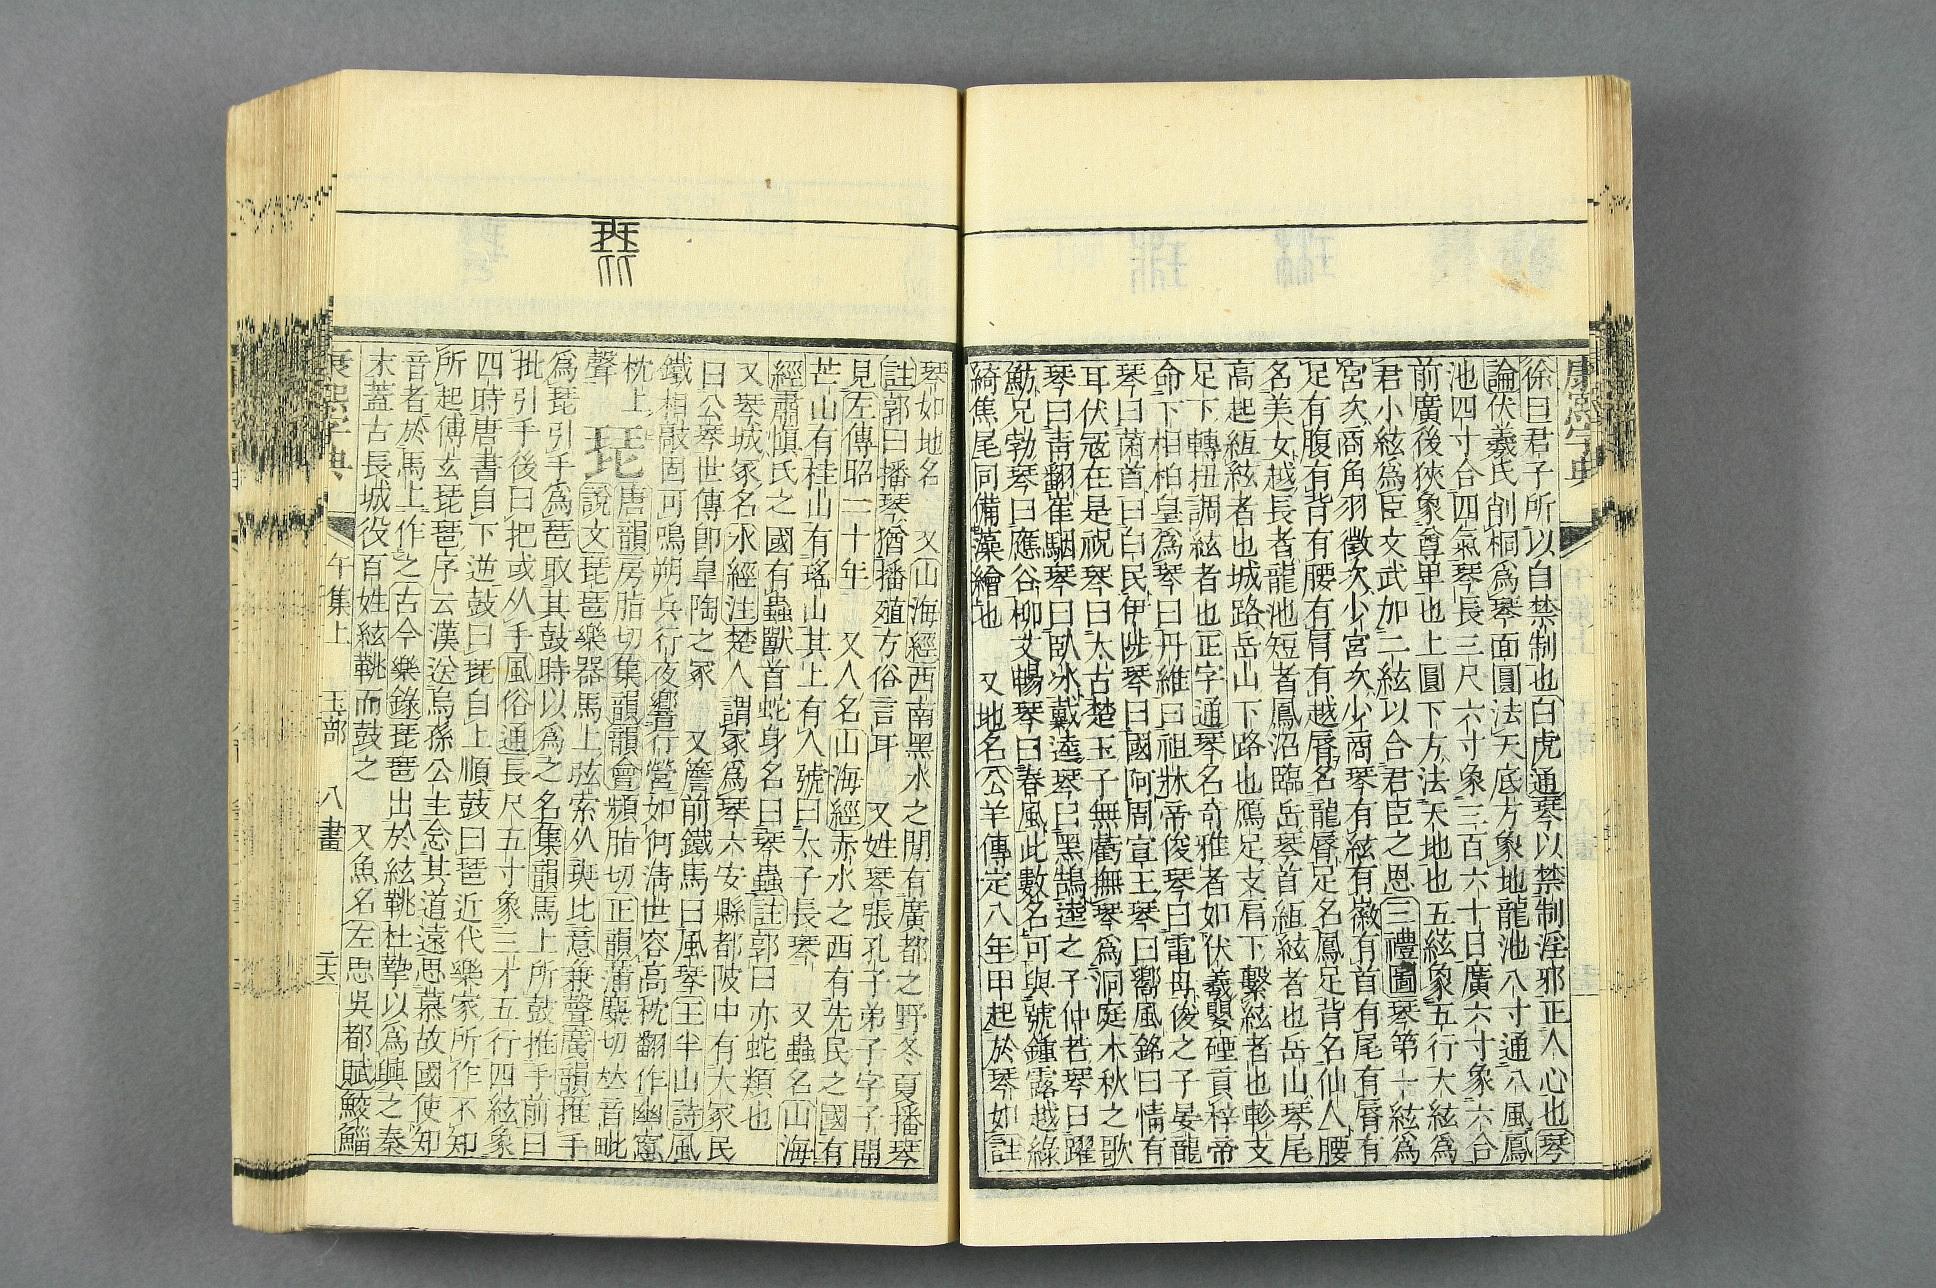 康熙字典
徐曰君子所以自禁制也白虎通琴以禁制淫邪正人心也琴
論伏羲氏削桐爲琴面圓法天底方象地龍池八寸通八風鳳
池四寸合四氣琴長三尺六寸象三百六十日廣六寸象六合
前廣後狹象尊卑也上圓下方法天地也五絃象五行大絃爲
君小絃爲臣文武加二絃以合君臣之恩三禮圖琴第一絃爲
宮次商角羽徵次少宮次少商琴有絃有徽有首有尾有脣有
足有腹有背有腰有肩有越脣名龍脣足名鳳足背名仙人腰
名美女越長者龍池短者鳳沼臨岳琴首絚絃者也岳山琴尾
高起絚絃者也城路岳山下路也鴈足支肩下繫絃者也軫支
足下轉扭調絃者也正字通琴名奇雅者如伏羲嬰磹貢梓帝
命下相柏皇爲琴曰丹維曰祖牀帝俊琴曰電母俊之子晏龍
琴曰菌首曰白民伊陟琴曰國阿周宣王琴曰嚮風銘曰情有
耳伏冦在是祝琴曰太古楚玉子無虧撫琴爲洞庭木秋之歌
琴曰青翻崔駰琴曰臥冰戴逵琴曰黑鵠逵之子仲若琴曰躍
魴兄勃琴曰應谷柳文暢琴曰春風此數名可與號鍾露越綠
綺焦尾同備藻繪也 又地名公羊傳定八年甲起於琴如註
琴如地名 又山海經西南黑水之閒有廣都之野冬夏播琴
註郭曰播琴猶播殖方俗言耳 又姓琴張孔子弟子字子開
見左傳昭二十年 又人名山海經赤水之西有先民之國有
芒山有桂山有瑤山其上有人號曰太子長琴 又蟲名山海
經肅愼氏之國有蟲獸首蛇身名曰琴蟲註郭曰亦蛇類也
又琴城冢名水經注楚人謂冢爲琴六安縣都陂中有大冢民
曰公琴世傳卽臯陶之冢 又簷前鐵馬曰風琴王半山詩風
鐵相敲固可鳴朔兵行夜響行營如何淸世容高枕翻作幽窻
枕上 琵 唐韻房脂切集韻韻會頻脂切正韻蒲麋切𠀤音毗
聲 說文琵琶樂器馬上弦索从珡比意兼聲廣韻推手
爲琵引手爲琶取其鼓時以爲之名集韻馬上所鼓推手前曰
批引手後曰把或从手風俗通長尺五寸象三才五行四絃象
四時唐書自下逆鼓曰琵自上順鼓曰琶近代樂家所作不知
所起傅玄琵琶序云漢送烏孫公主念其道遠思慕故國使知
音者於馬上作之古今樂錄琵琶出於絃鞉杜摯以爲興之秦
末蓋古長城役百姓絃鞉而鼓之 又魚名左思吳都賦鮫鯔
康熙字典 午集上 玉部 八畫 二十六